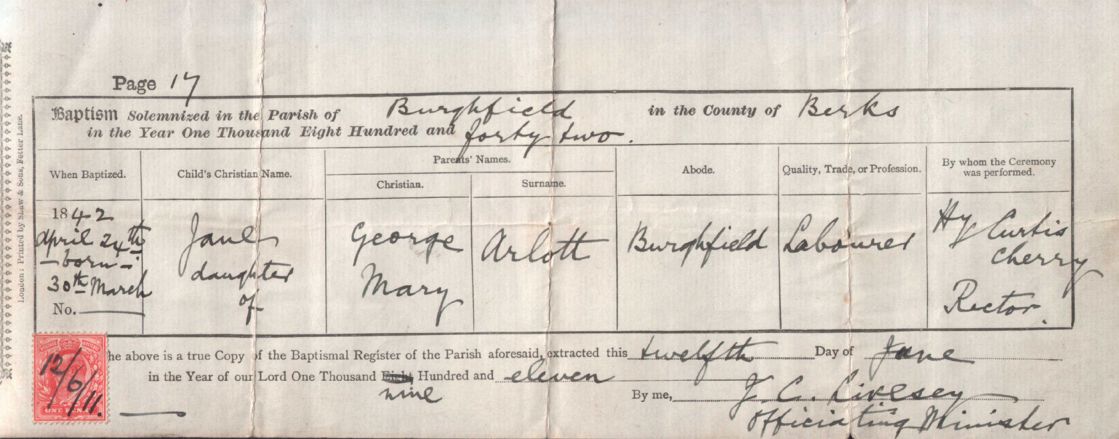 London: Printed by Shaw & Sons, Fetter Lane.
Page 17
Baptism Solemnized in the Parish of Burghfield in the County of Berks
in the Year One Thousand Eight Hundred and forty two.
When Baptized. Child's Christian Name. Parents' Names. Abode. Quality, Trade, or Profession. By whom the Ceremony was performed.
Christian. Surname.
1842
April 24th
– born –
30th March
No.
Jane
daughter
of
George
Mary
Arlott
Burghfield
Labourer
Hy Curtis
Cherry
Rector.
he above is a true Copy of the Baptismal Register of the Parish aforesaid, extracted this twelfth Day of June
in the Year of our Lord One Thousand Eight Hundred and eleven
nine
By me, J. C. Livesey
Officiating Minister
12/6/11.
ONE PENNY